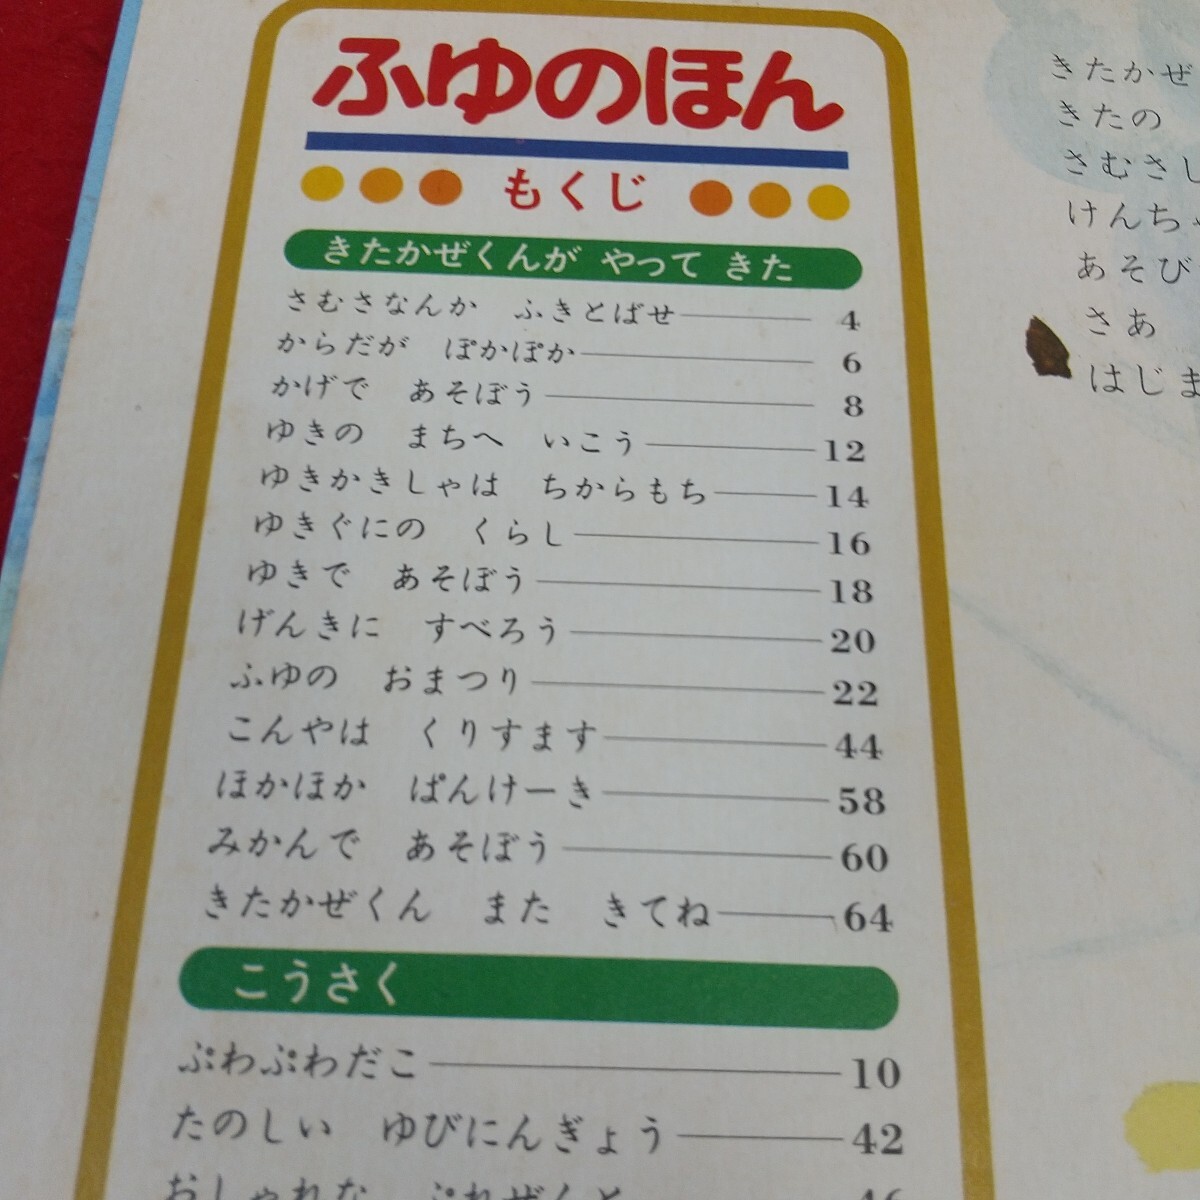 ふゆのほん
もくじ
きたかぜくんが やって きた
さむさなんか ふきとばせ 4
からだが ぽかぽか 6
かげで あそぼう 8
ゆきの まちへ いこう 12
ゆきかきしゃは ちからもち 14
ゆきぐにの くらし 16
ゆきで あそぼう 18
げんきに すべろう 20
ふゆの おまつり 22
こんやは くりすます 44
ほかほか ぱんけーき 58
みかんで あそぼう 60
きたかぜくん また きてね 64
こうさく
ぷわぷわだこ 10
たのしい ゆびにんぎょう 42
おしゃれな ぷれぜんと 46
きたかぜ
きたの
さむさし
けんちゃ
あそび
さあ
はじま